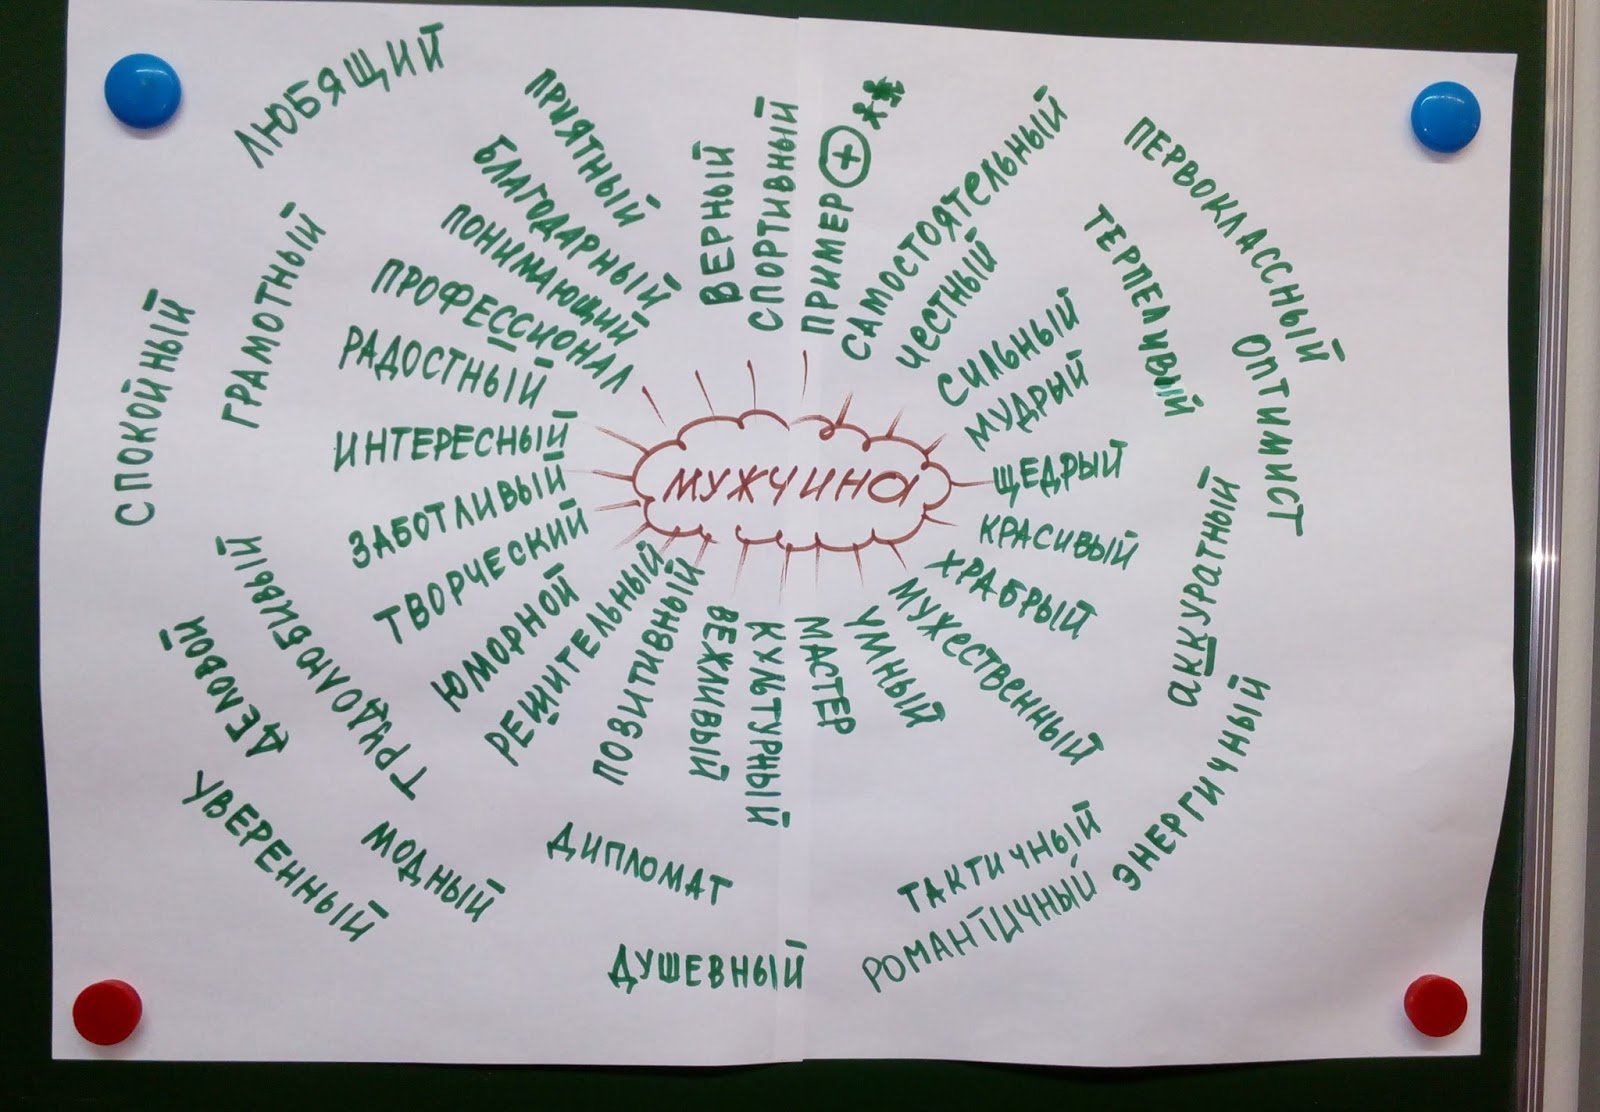 МУЖЧИНА
ВЕРНЫЙ
СПОРТИВНЫЙ
ПРИМЕР +
САМОСТОЯТЕЛЬНЫЙ
ЧЕСТНЫЙ
СИЛЬНЫЙ
МУДРЫЙ
ЩЕДРЫЙ
КРАСИВЫЙ
ХРАБРЫЙ
МУЖЕСТВЕННЫЙ
УМНЫЙ
МАСТЕР
КУЛЬТУРНЫЙ
ВЕЖЛИВЫЙ
ПОЗИТИВНЫЙ
РЕШИТЕЛЬНЫЙ
ЮМОРНОЙ
ТВОРЧЕСКИЙ
ЗАБОТЛИВЫЙ
ИНТЕРЕСНЫЙ
РАДОСТНЫЙ
ПРОФЕССИОНАЛ
ПОНИМАЮЩИЙ
БЛАГОДАРНЫЙ
ПРИЯТНЫЙ
ПЕРВОКЛАССНЫЙ
ТЕРПЕЛИВЫЙ
ОПТИМИСТ
аККУРАТНЫЙ
ЭНЕРГИЧНЫЙ
ТАКТИЧНЫЙ
РОМАНТИЧНЫЙ
ДУШЕВНЫЙ
ДИПЛОМАТ
МОДНЫЙ
УВЕРЕННЫЙ
ДЕЛОВОЙ
ТРУДОЛЮБИВЫЙ
СПОКОЙНЫЙ
ГРАМОТНЫЙ
ЛЮБЯЩИЙ